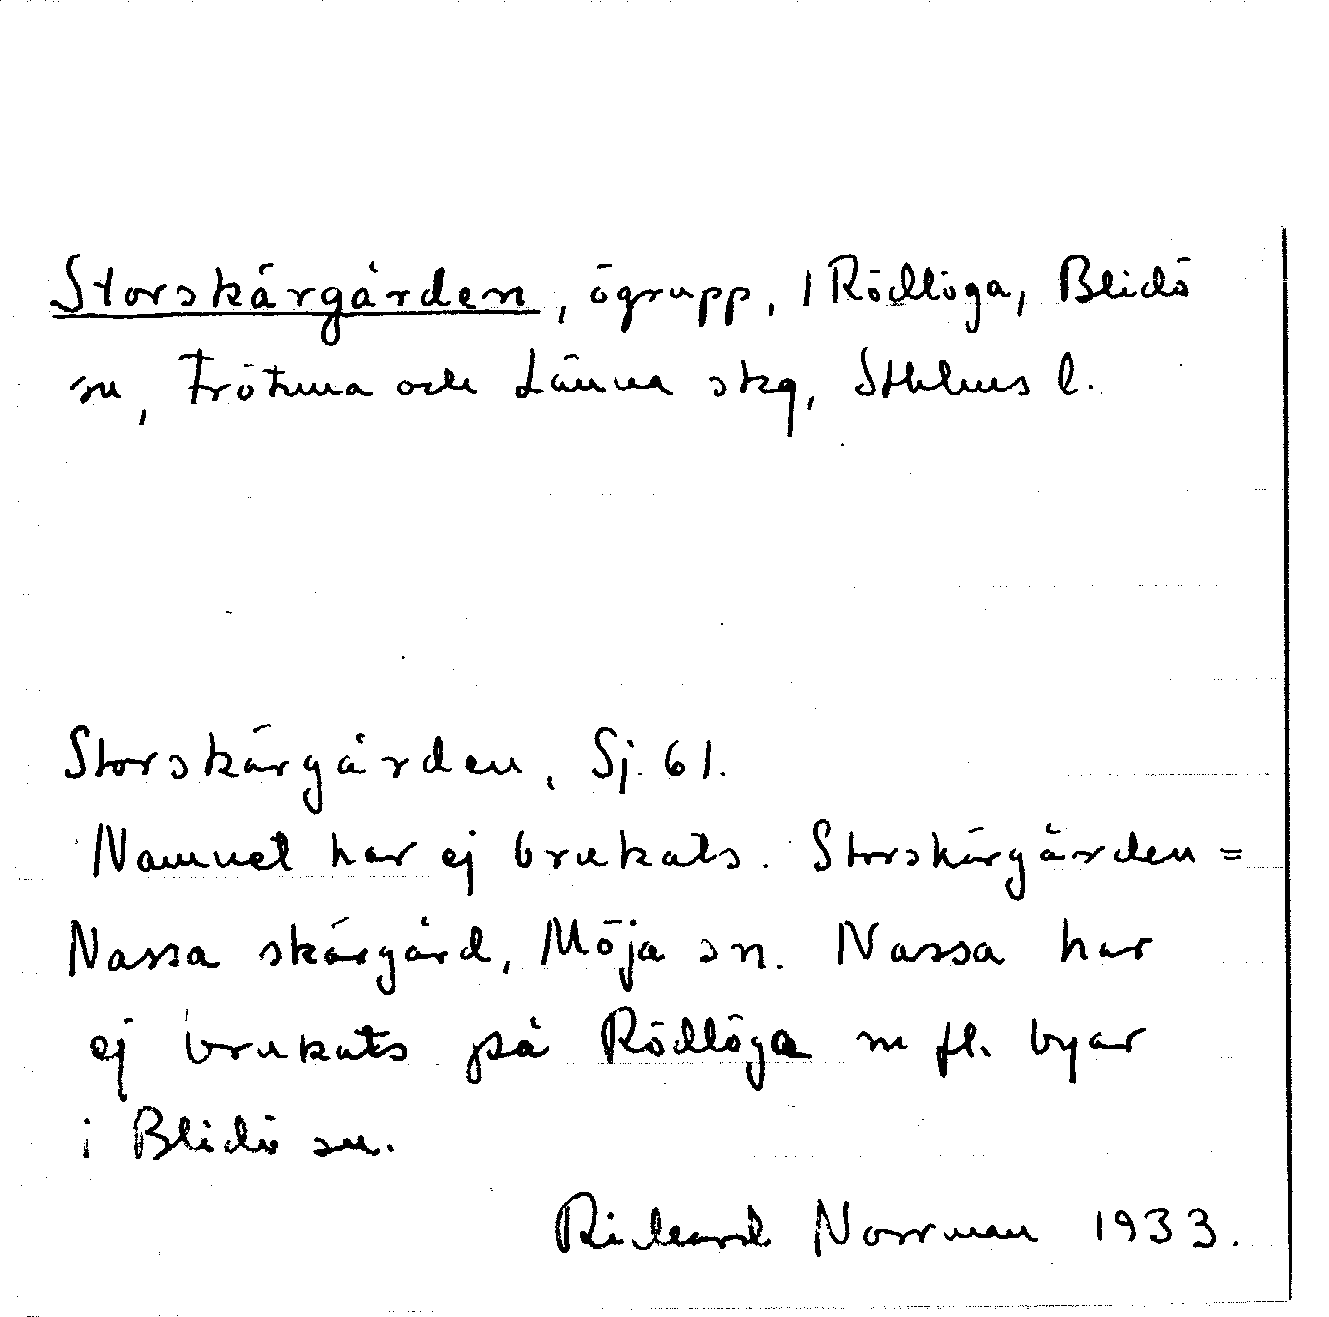 Storskärgården, ögrupp, 1 Rödlöga, Blidö
sn, Frötuna och Länna skg, Sthlms l.
Storskärgården, Sj. 61.
Namnet har ej brukats. Storskärgården =
Nassa skärgård, Möja sn. Nassa har
ej brukats på Rödlöga m fl. byar
i Blidö sn.
Rickard Norrman 1933.